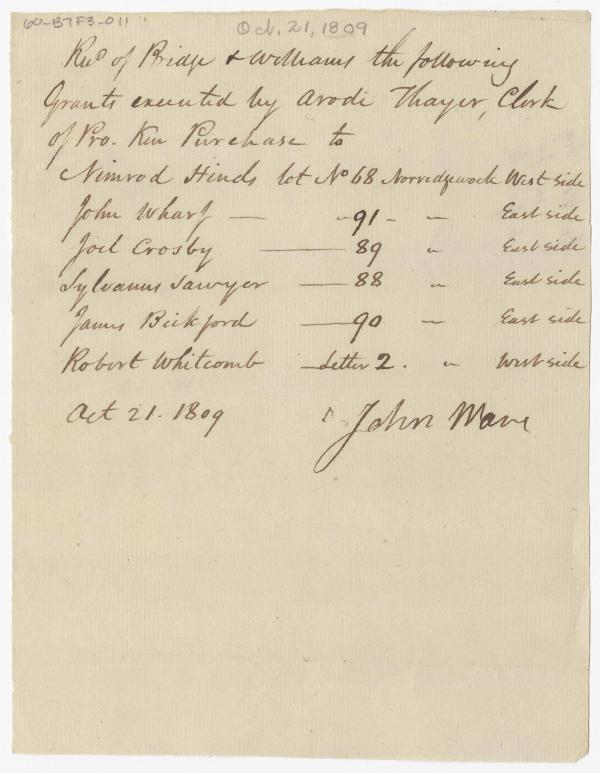 60-B7F3-011
Oct. 21, 1809
Rec.d of Bridge & Williams the following
Grants executed by Arodi Thayer, Clerk
of Pro. Ken Purchase to
Nimrod Hinds lot No 68 Norridgewock West side
John Wharf — " 91 - " East side
Joel Crosby — 89 " East side
Sylvanus Sawyer — 88 " East side
James Bickford — 90 " East side
Robert Whitcomb — Letter 2. " West side
Oct 21. 1809 John